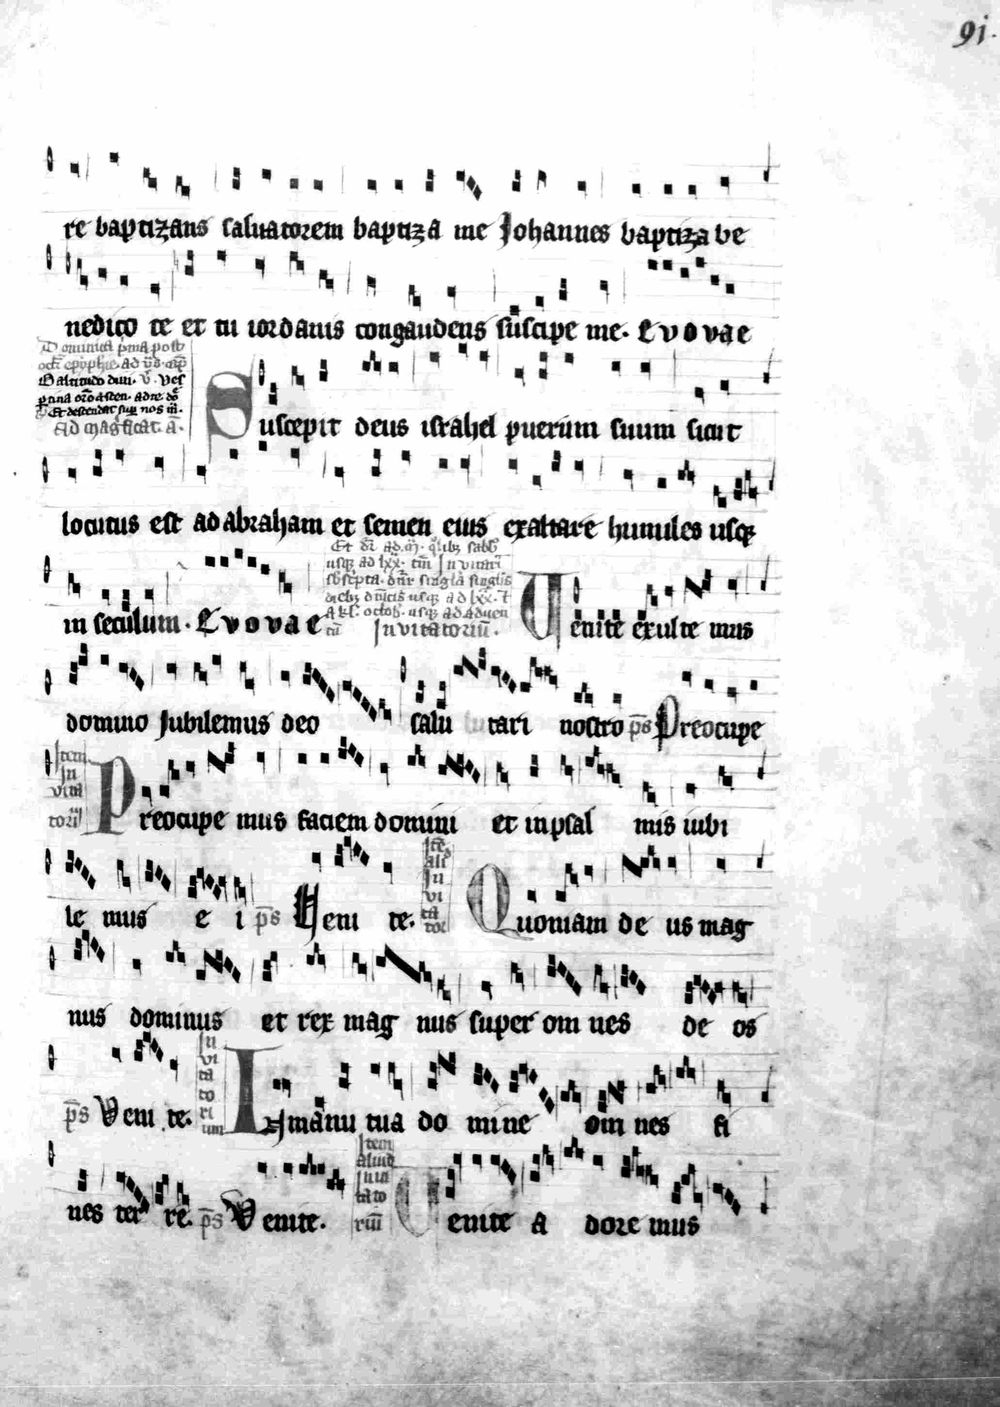 91.
re baptizans saluatorem baptiza me Johannes baptiza be
nedico te et tu iordanis congaudens suscipe me. Evovae
Dominica prima post
Ad magnificat. a.
Suscepit deus israhel puerum suum sicut
locutus est ad abraham et semen eius exaltare humiles usq
in seculum. Evovae
Invitatoriu.
Uenite exulte mus
domino Jubilemus deo salu tari nostro ps Preocupe
Item
In
vita
torii
Preocupe mus faciem domini et inpsal mis iubi
le mus e i ps Veni te.
Ite
ali
In
vi
ta
tor
Quoniam de us mag
nus dominus et rex mag nus super om nes de os
ps Veni te.
In
vi
ta
to
ri
um
In manu tua do mine om nes fi
nes ter re. ps Venite.
Item
aliud
Inui
tato
rium
Uenite a dore mus